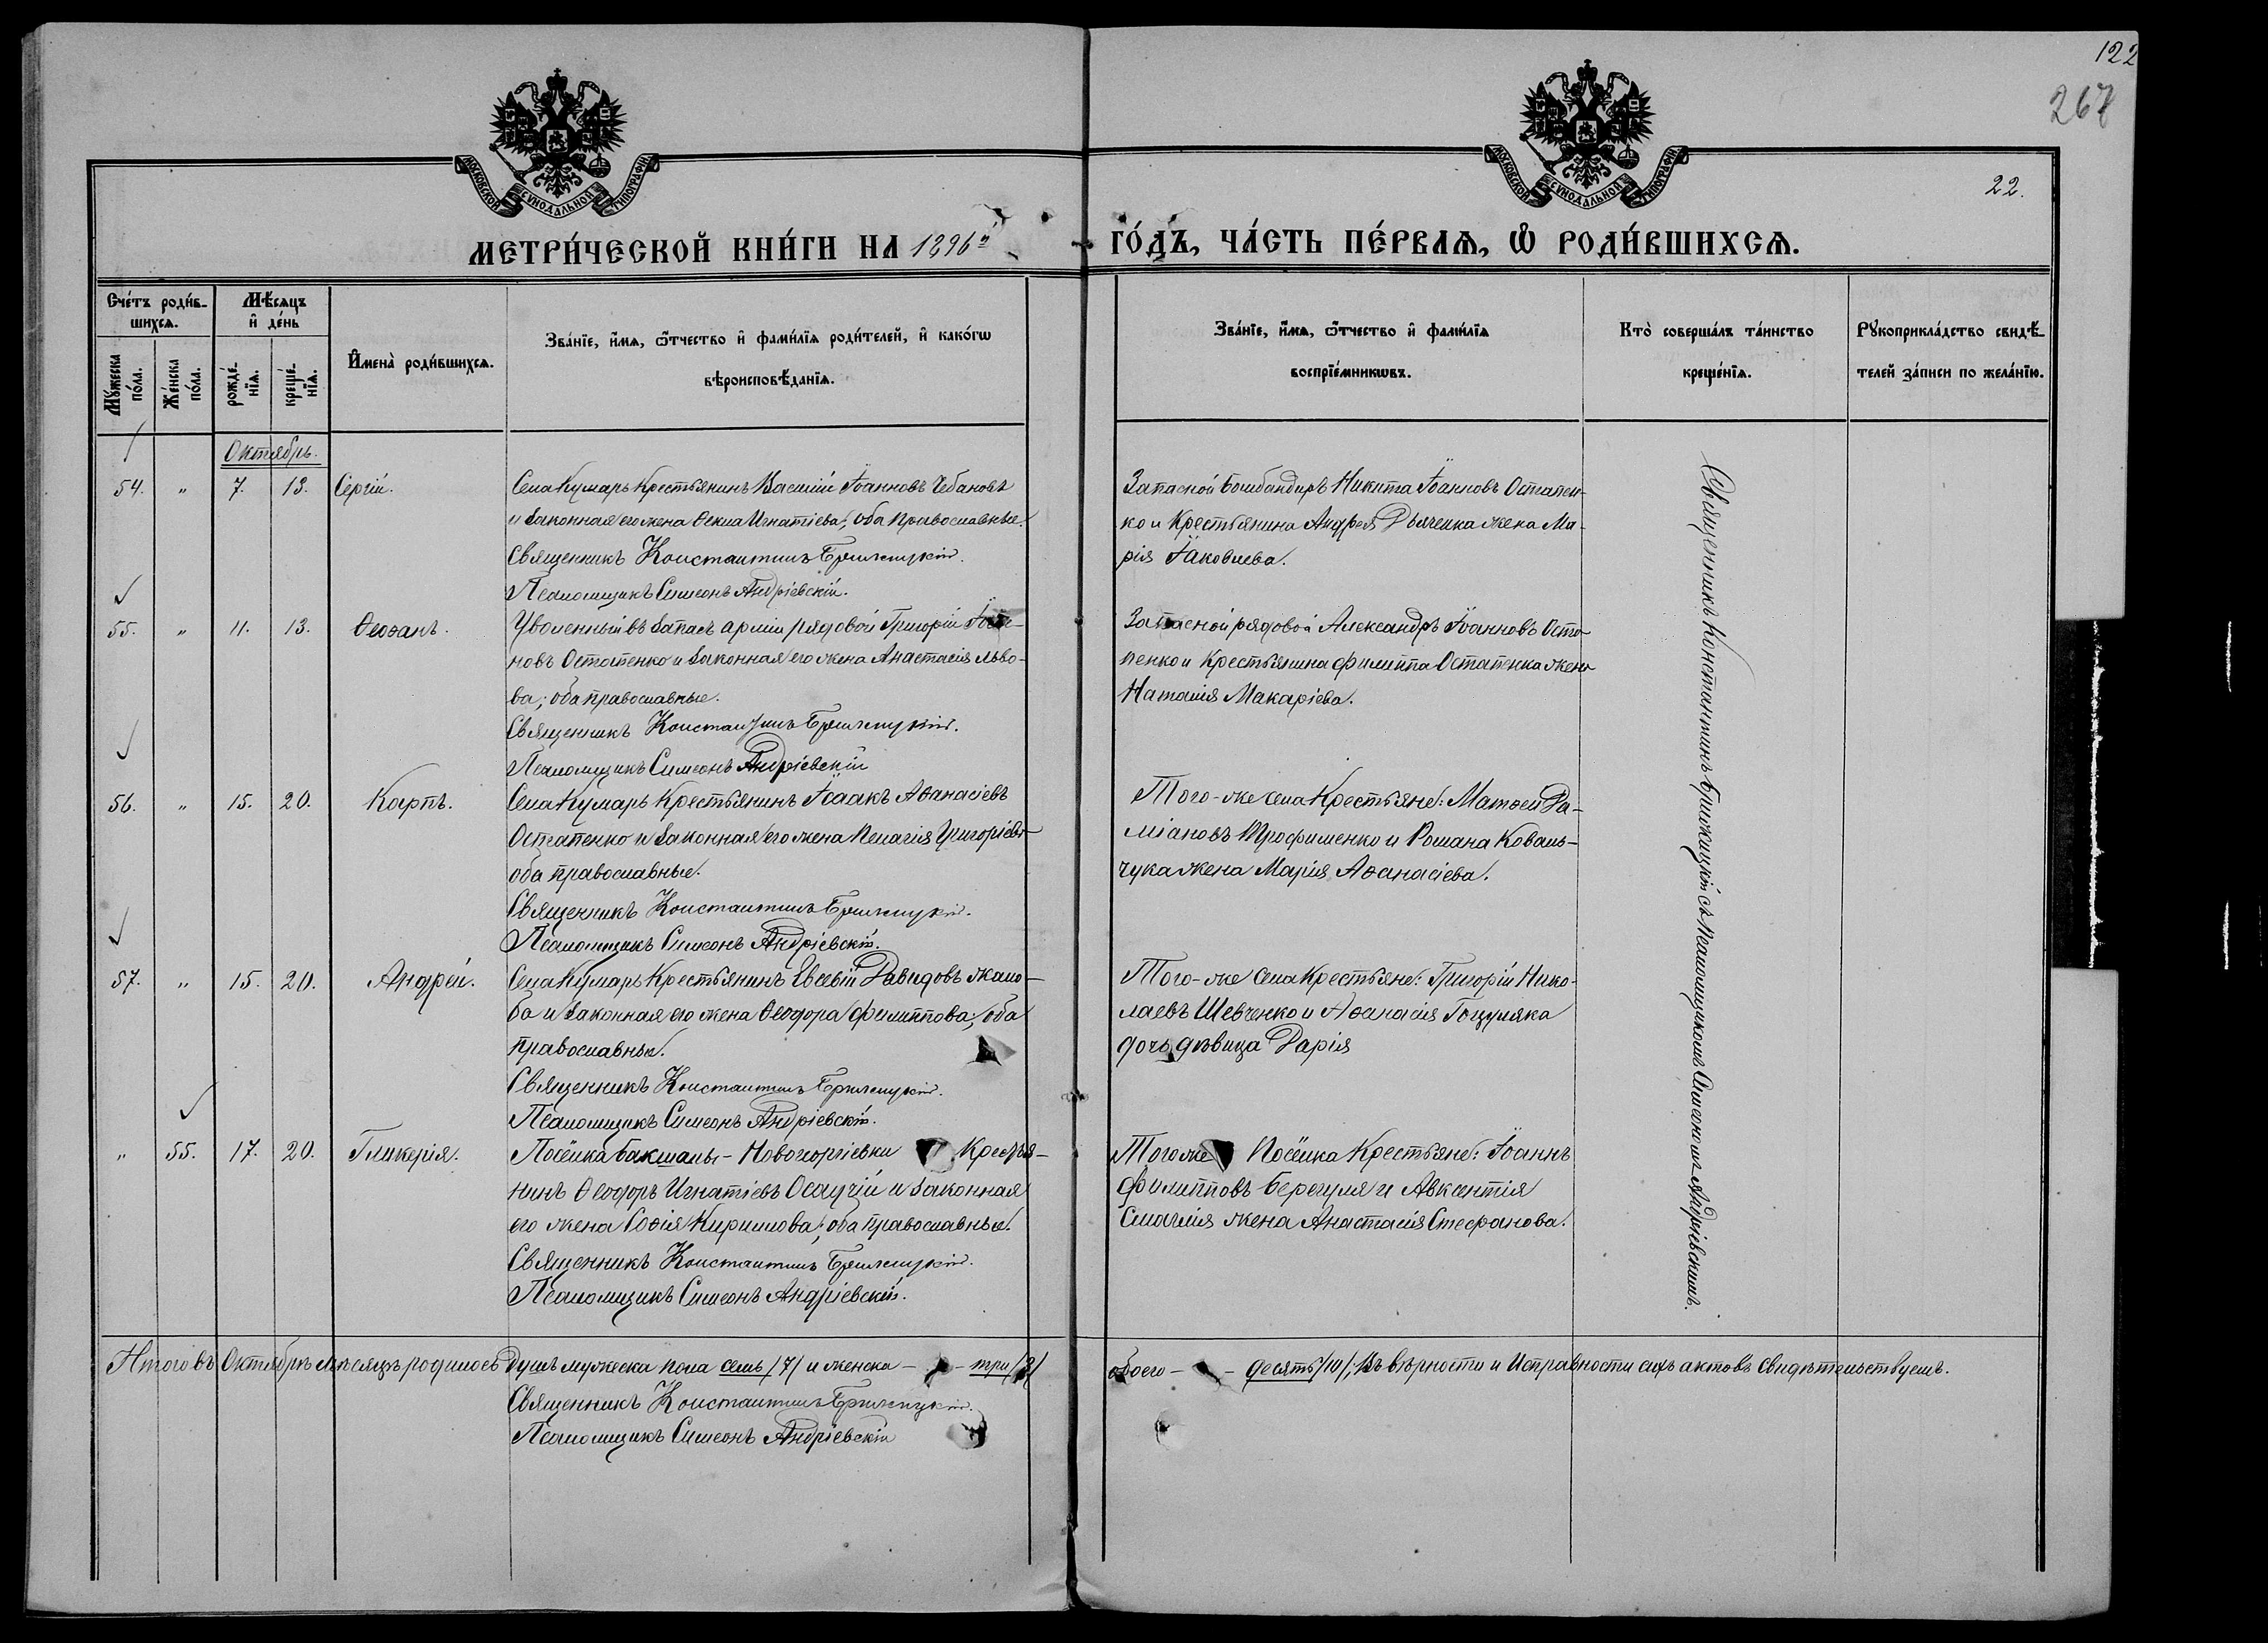 122
267
22.
МОСКОВСКОЙ СѴНОДАЛЬНОЙ ТИПОГРАФІИ
МОСКОВСКОЙ СѴНОДАЛЬНОЙ ТИПОГРАФІИ
МЕТРИ́ЧЕСКОЙ КНИ́ГИ НА 1896й ГО́ДЪ, ЧА́СТЬ ПЕ́РВАѦ, Ѽ РОДИ́ВШИХСѦ.
Счéтъ роди́в-
шихсѧ.
Мѣ́сѧцъ
и҆ де́нь
И҆мена̀ роди́вшихсѧ.
Зва́нїе, и҆́мѧ, ѻ҆́тчество и҆ фами́лїѧ роди́телей, и҆ како́гѡ
вѣроисповѣ́данїѧ.
Мꙋ́жеска
по́ла.
Же́нска
по́ла.
рожде́-
нїѧ.
креще́-
нїѧ.
Зва́нїе, и҆́мѧ, ѻ҆́тчество и҆ фами́лїѧ
воспрїе́мникѡвъ.
Кто̀ соверша́лъ та́инство
креще́нїѧ.
Рꙋкоприкла́дство свидѣ́-
телей за́писи по жела́нїю.
Октябрь.
54. " 7. 13. Сергій.
Села Кумаръ Крестьянинъ Василій Іоанновъ Чебановъ
и законная его жена Ѳекла Игнатіева; оба православные.
Священникъ Константинъ Брижицкій.
Псаломщикъ Симеонъ Андріевскій.
Запасной бомбандиръ Никита Іоанновъ Остапен-
ко и Крестьянина Андрея Дьяченка жена Ма-
рія Іаковлева.
55. " 11. 13. Ѳеофанъ.
Уволенный въ запасъ арміи рядовой Григорій Іоан-
новъ Остапенко и законная его жена Анастасія Льво-
ва; оба православные.
Священникъ Константинъ Брижицкій.
Псаломщикъ Симеонъ Андріевскій
Запасной рядовой Александръ Іоанновъ Оста-
пенко и Крестьянина Филиппа Остапенка жена
Наталія Макаріева.
56. " 15. 20. Карпъ.
Села Кумаръ Крестьянинъ Ісаакъ Аѳанасіевъ
Остапенко и законная его жена Пелагія Григоріева
оба православные.
Священникъ Константинъ Брижицкій.
Псаломщикъ Симеонъ Андріевскій.
Того-же села Крестьяне: Матѳей Да-
міановъ Трофименко и Романа Коваль-
чука жена Марія Аѳанасіева.
57. " 15. 20. Андрей.
Села Кумаръ Крестьянинъ Евсевій Давидовъ Жало-
ба и законная его жена Ѳеодора Филиппова; оба
православные.
Священникъ Константинъ Брижицкій.
Псаломщикъ Симеонъ Андріевскій.
Того-же села Крестьяне: Григорій Нико-
лаевъ Шевченко и Аѳанасія Гоцуляка
дочь дѣвица Дарія
" 55. 17. 20. Гликерія.
Посёлка Бакшалы-Новогеоргіевки Крестья-
нинъ Ѳеодоръ Игнатіевъ Осадчій и законная
его жена Софія Кириллова; оба православные.
Священникъ Константинъ Брижицкій.
Псаломщикъ Симеонъ Андріевскій.
Того же Посёлка Крестьяне: Іоаннъ
Филипповъ Берегуля и Авксентія
Смаглія жена Анастасія Стефанова.
Священникъ Константинъ Брижицкій съ Псаломщикомъ Симеономъ Андріевскимъ.
Итого въ Октябрѣ мѣсяцѣ родилось душъ мужеска пола семь /7/ и женска - - три /3/ обоего - - десять /10/; Въ вѣрности и исправности сихъ актовъ свидѣтельствуемъ.
Священникъ Константинъ Брижицкій.
Псаломщикъ Симеонъ Андріевскій